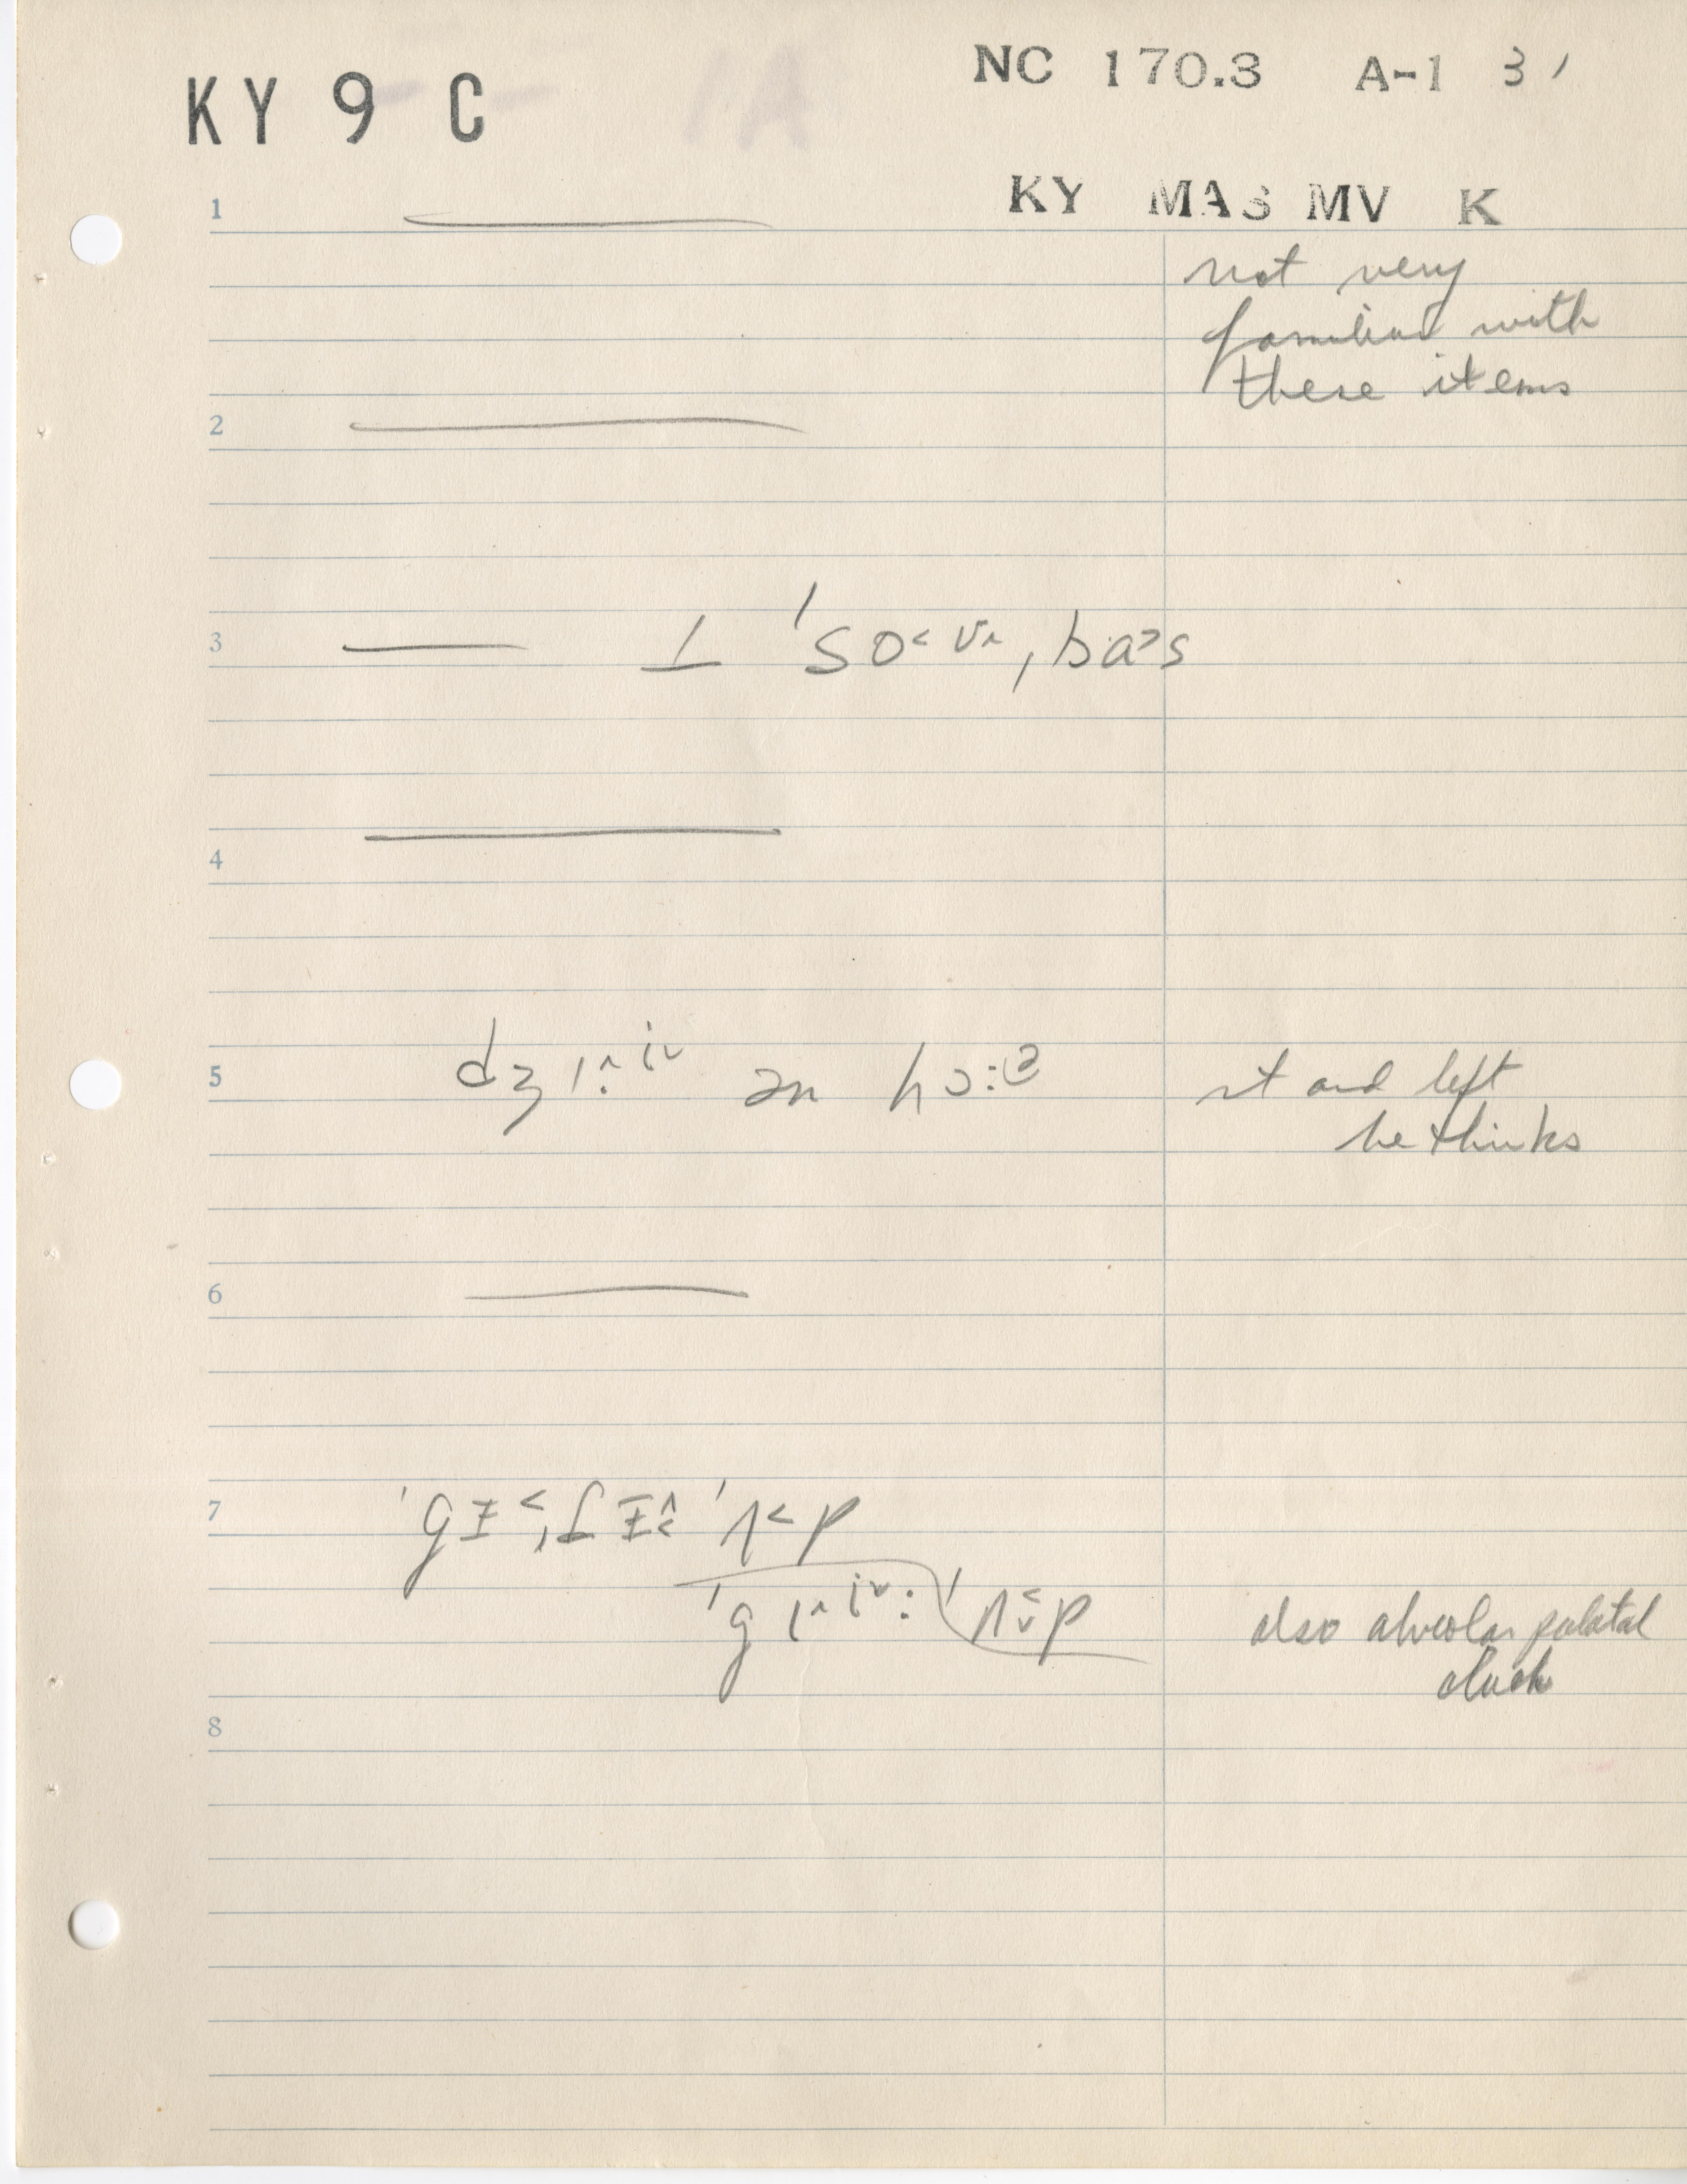 KY 9 C
NC 170.3 A-1 3'
KY MAS MV K
1
not very
familiar with
these items
2
3 — ⊥ ˈso˂ʊ˄ˌba˃s
4
5 dʒɪ˄:i˅ ən hɔ:
rt and left
he thinks
6
7 ˈgɪ˂ˌ ˈʌ˂p
ˈgɪ˄i˅: ˈʌp
also alveolar palatal
cluck
8